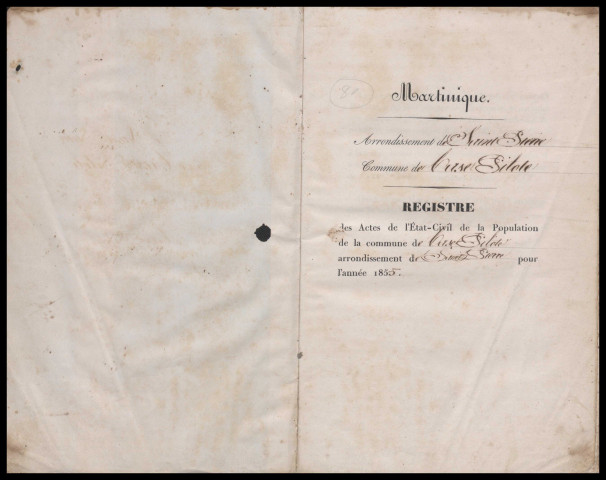 Martinique.
Arrondissement de Saint Pierre
Commune de Case Pilote
REGISTRE
des Actes de l'État-Civil de la Population
de la commune de Case Pilote
arrondissement de Saint Pierre pour
l'année 1855.